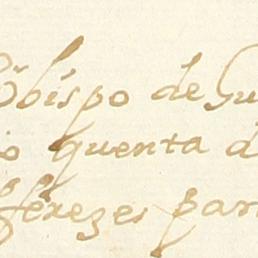 Obispo de Gu
o quenta d
ferezes par